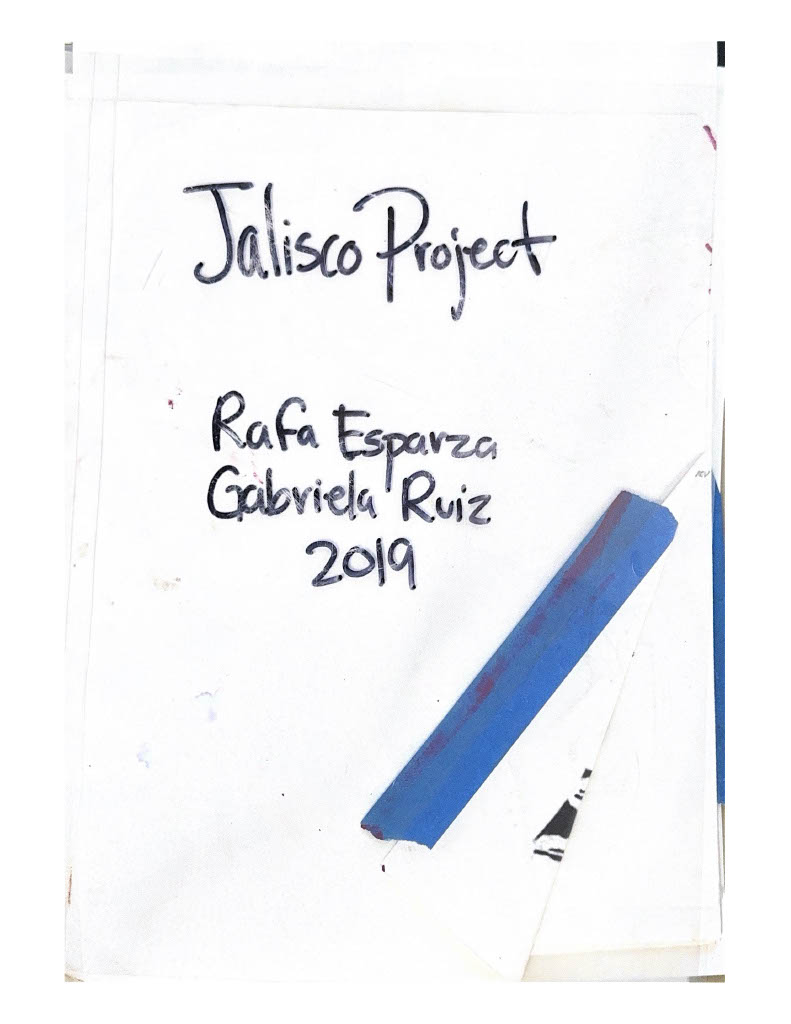 Jalisco Project
Rafa Esparza
Gabriela Ruiz
2019